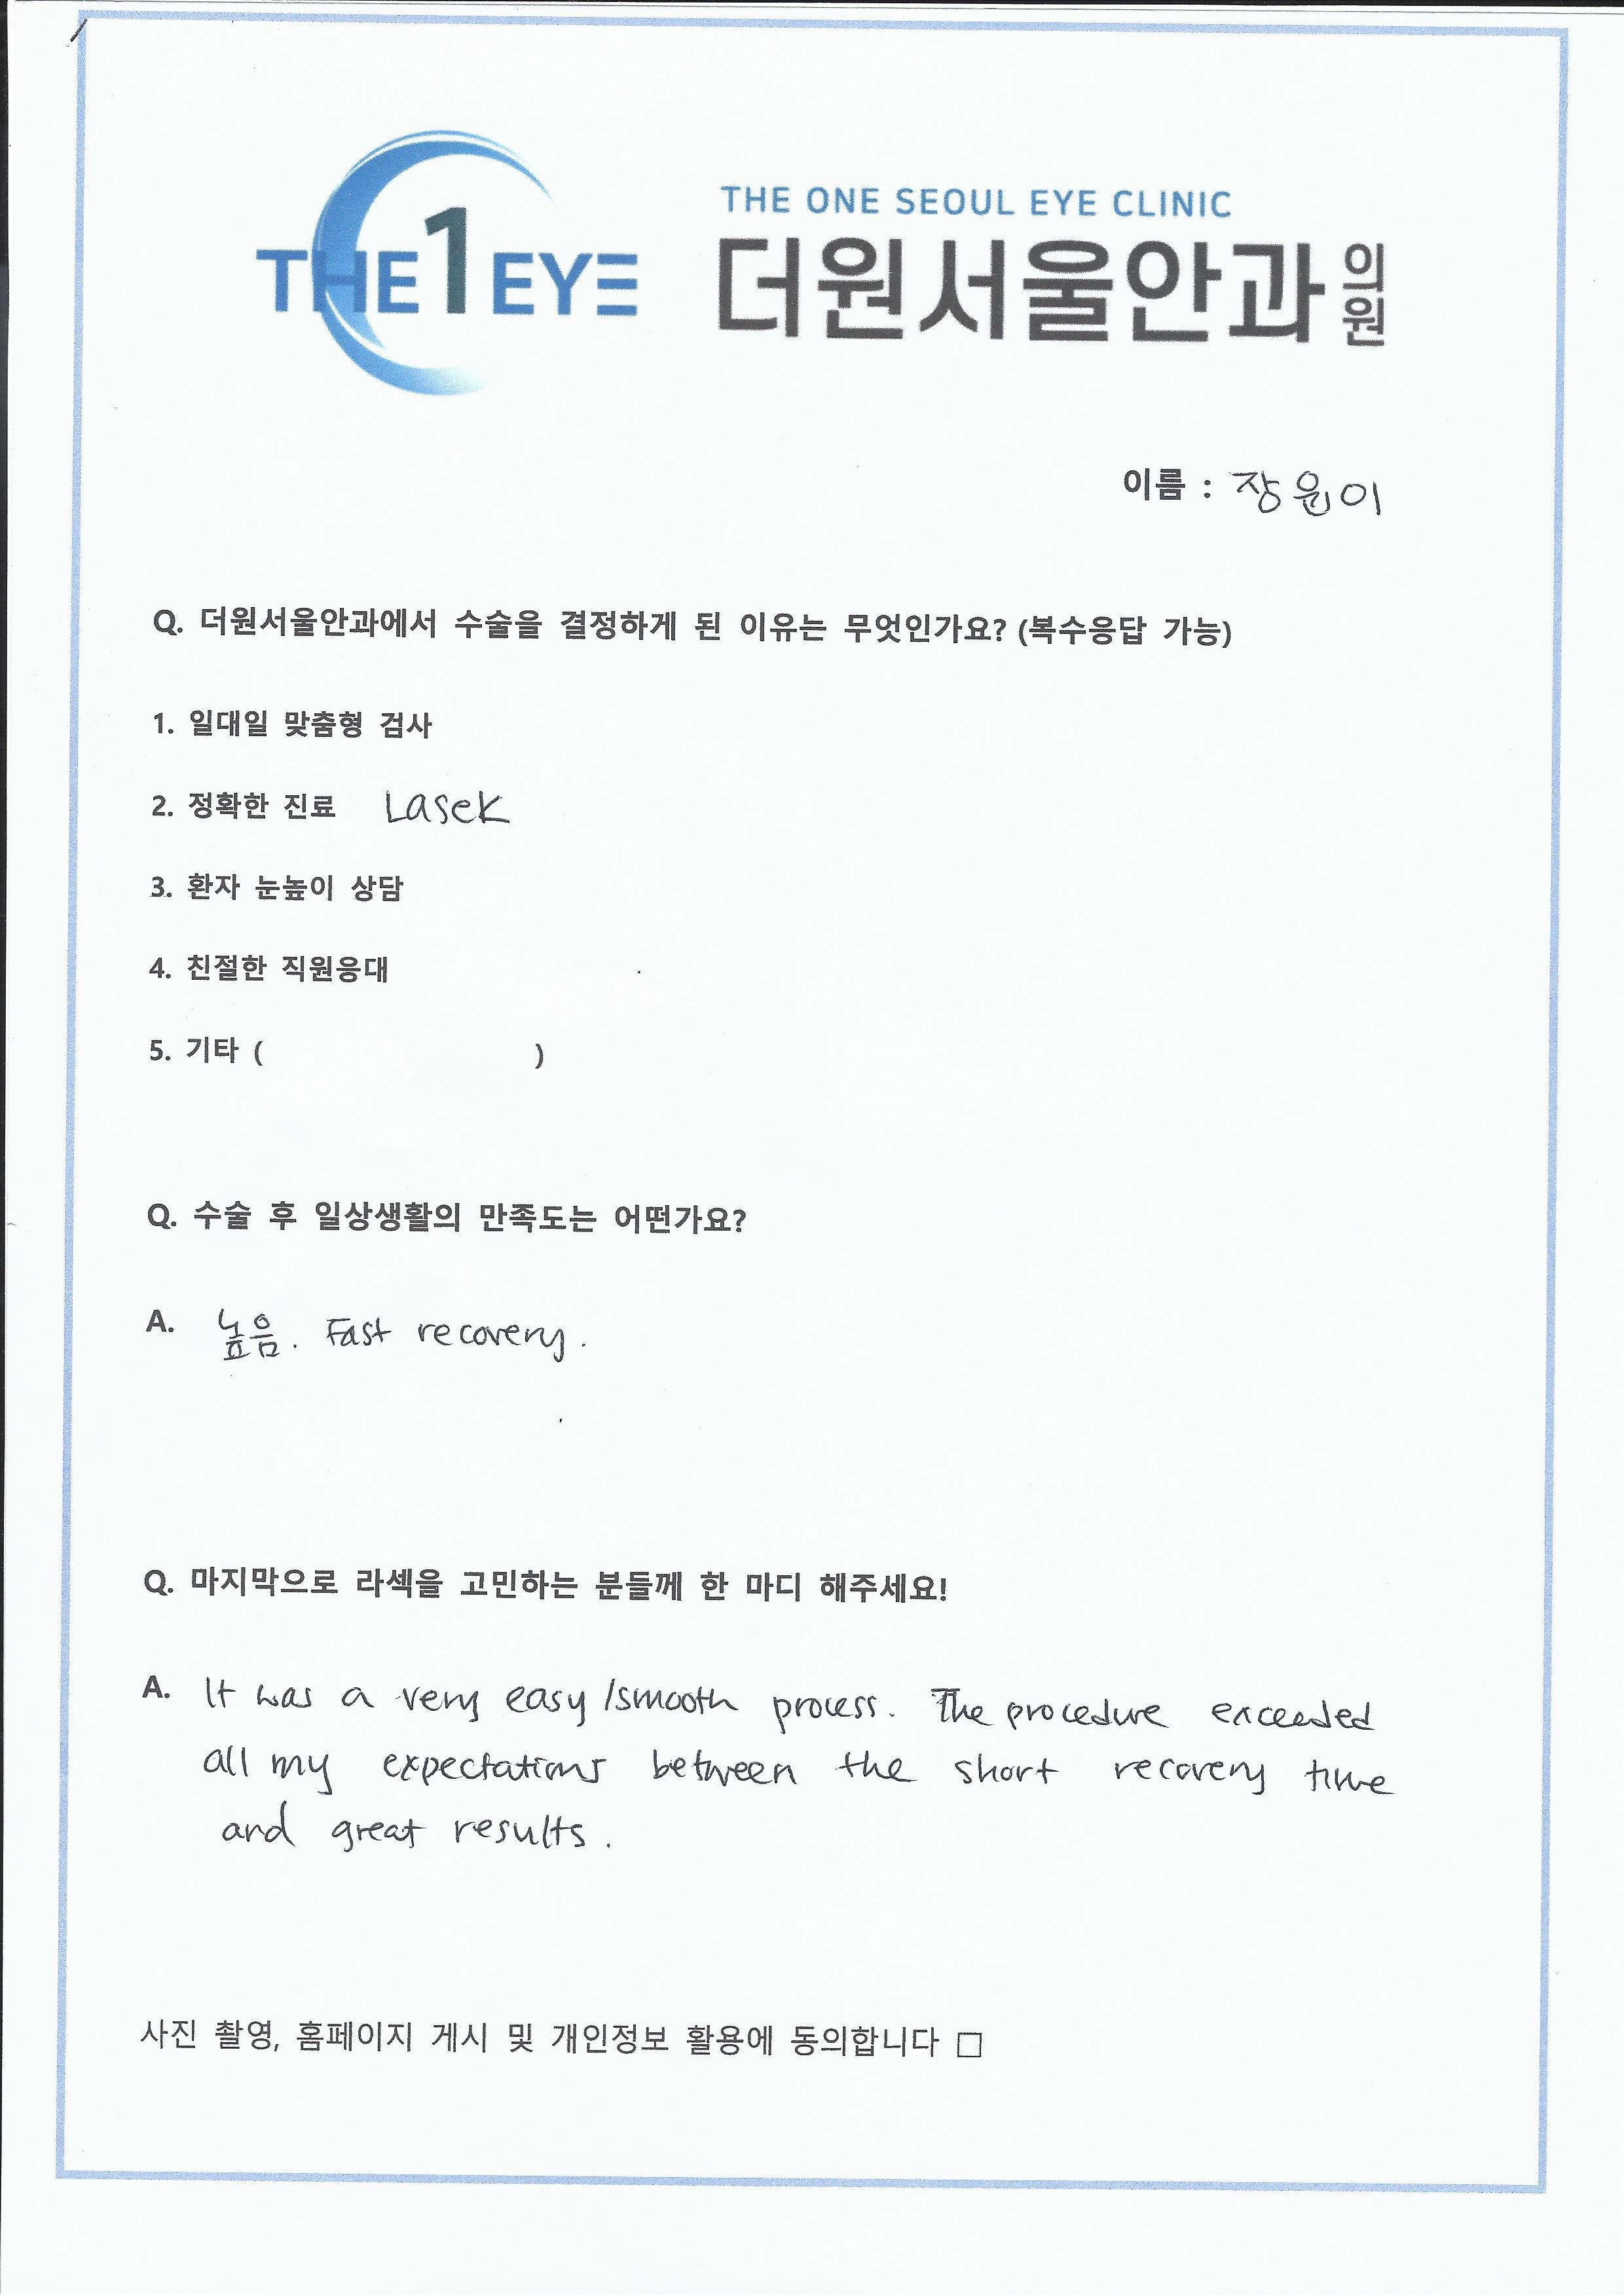 THE 1 EYE
THE ONE SEOUL EYE CLINIC
더원서울안과의원
이름 : 장윤이
Q. 더원서울안과에서 수술을 결정하게 된 이유는 무엇인가요? (복수응답 가능)
1. 일대일 맞춤형 검사
2. 정확한 진료 Lasek
3. 환자 눈높이 상담
4. 친절한 직원응대
5. 기타 ( )
Q. 수술 후 일상생활의 만족도는 어떤가요?
A. 높음. Fast recovery.
Q. 마지막으로 라섹을 고민하는 분들께 한 마디 해주세요!
A. It was a very easy/smooth process. The procedure exceeded
all my expectations between the short recovery time
and great results.
사진 촬영, 홈페이지 게시 및 개인정보 활용에 동의합니다 □